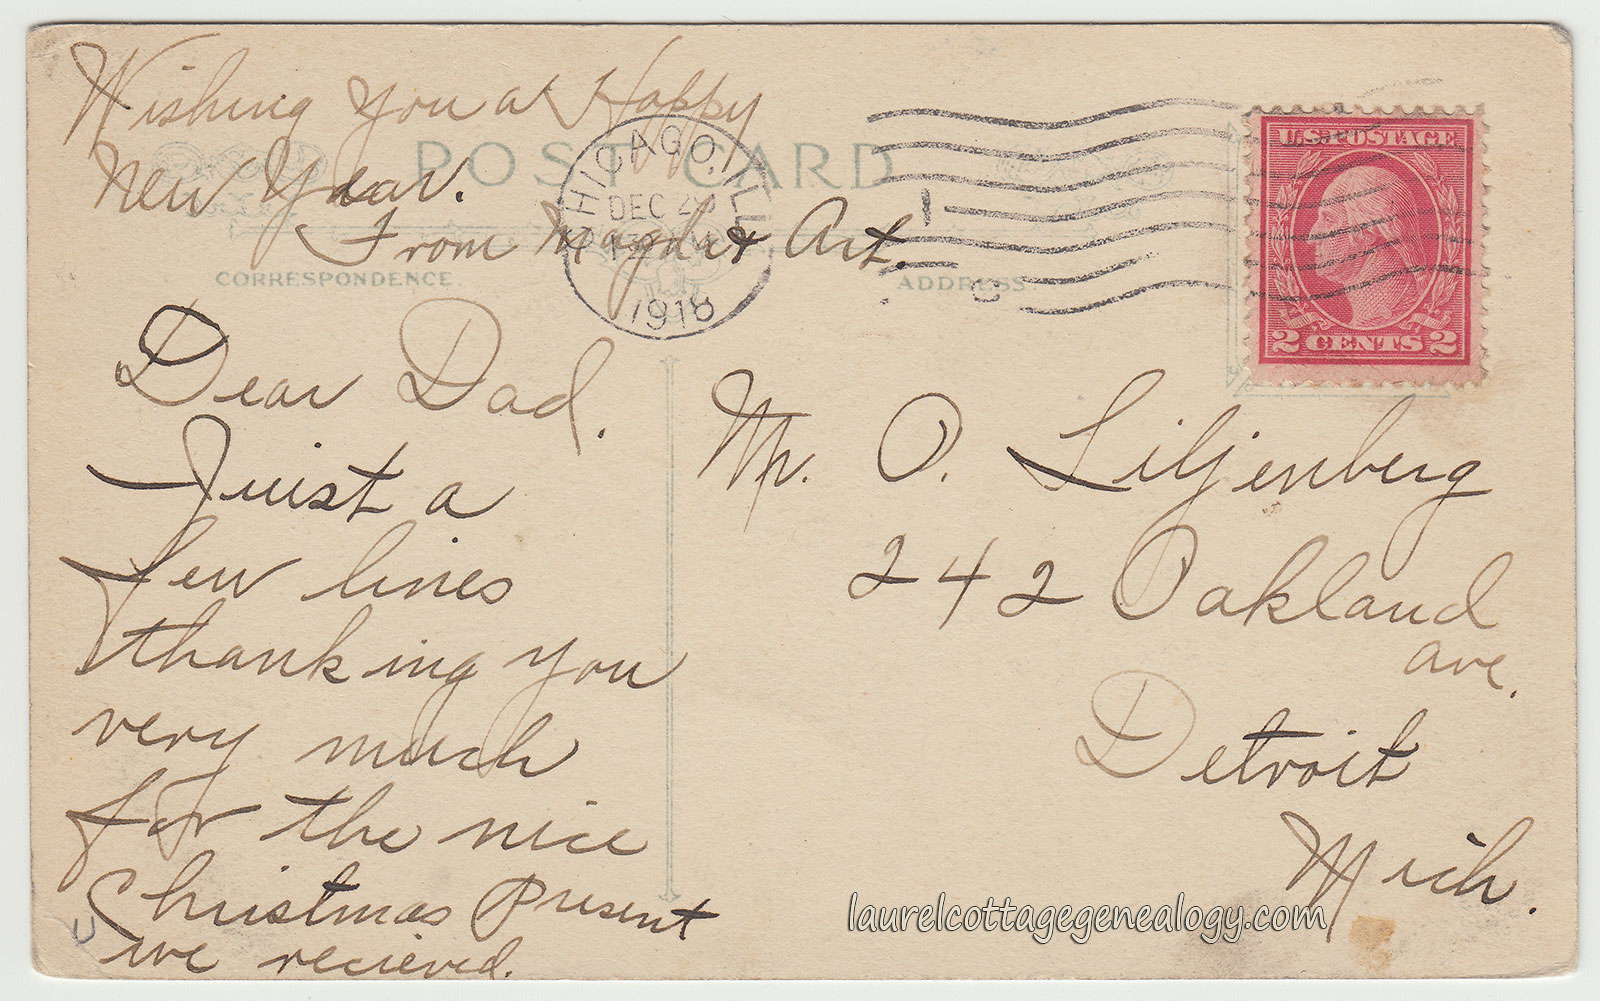 Wishing you a Happy
New Year.
From Magda & Art.
POST CARD
CORRESPONDENCE
ADDRESS
CHICAGO, ILL.
DEC
1918
U.S. POSTAGE
2 CENTS 2
Dear Dad.
Juist a
few lines
thanking you
very much
for the nice
Christmas Present
we recieved.
Mr. O. Liljenberg
242 Oakland
Ave.
Detroit
Mich.
laurelcottagegenealogy.com